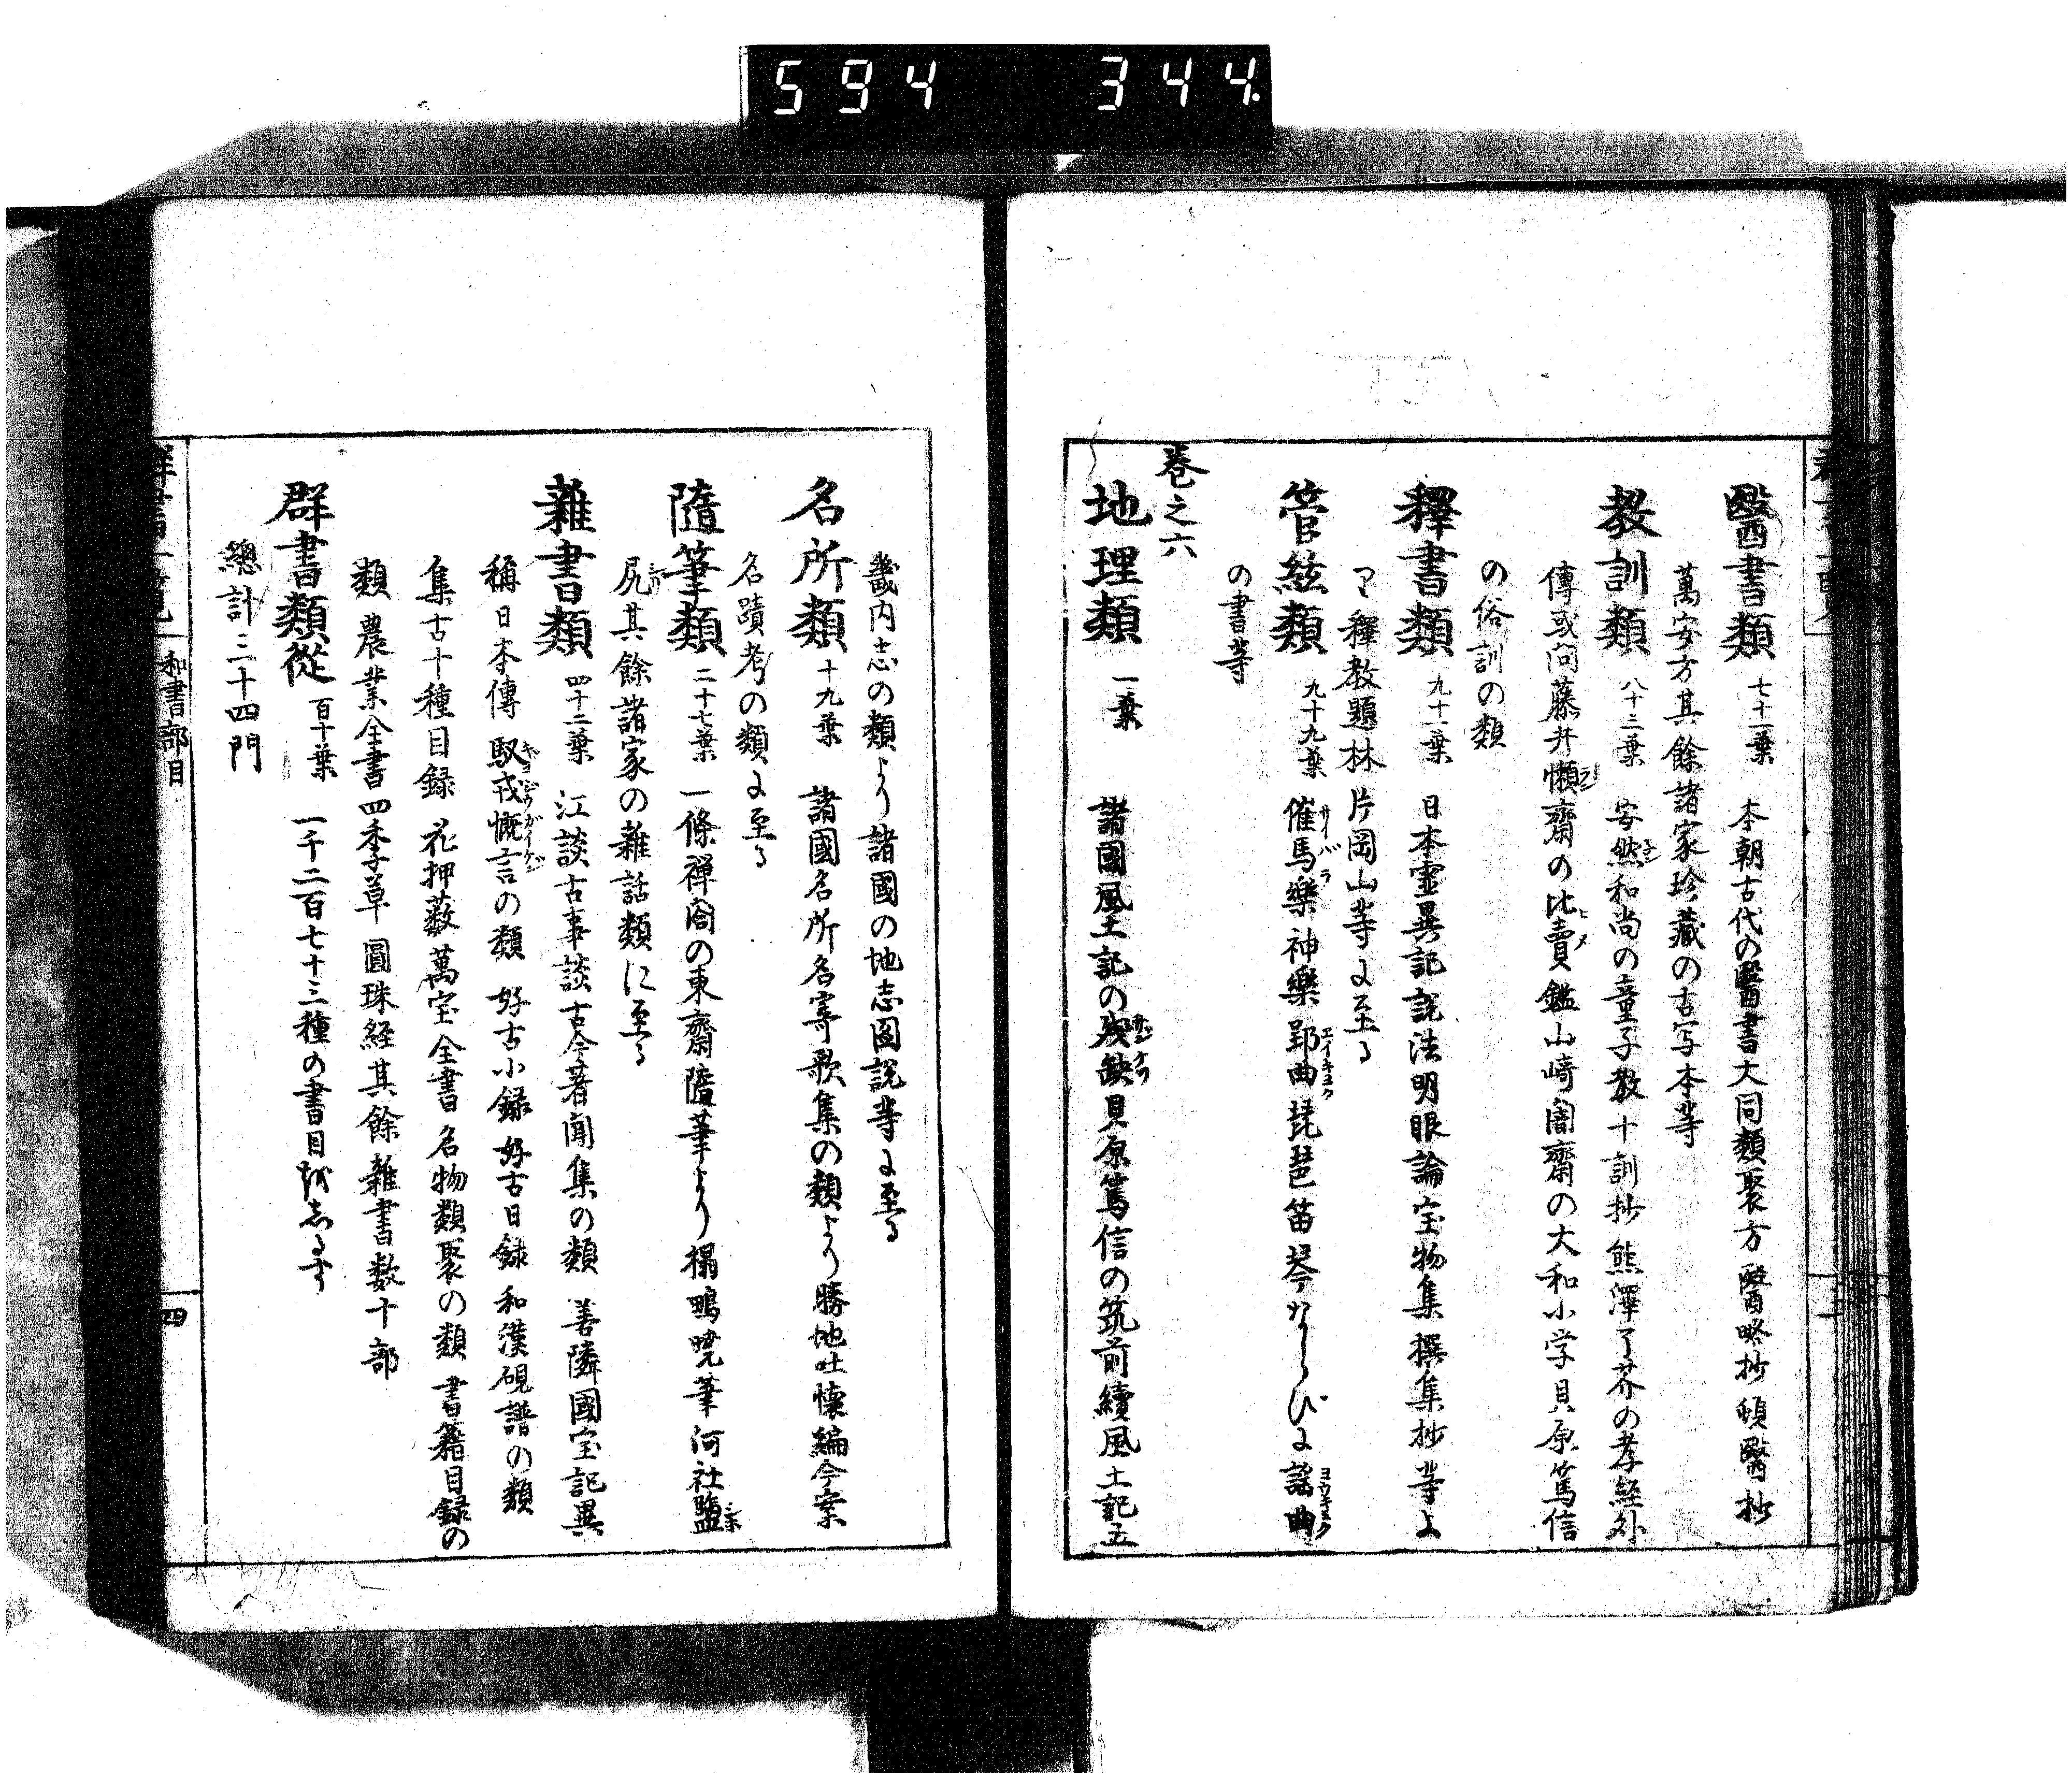 594 344
醫書類 七十一葉 本朝古代の醫書大同類聚方 醫略抄 頓醫抄
萬安方其餘諸家珍藏の古写本等
教訓類 八十二葉 安然和尚の童子教 十訓抄 熊澤了芥の孝經外
傳或問藤井懶齋の比賣鑑山﨑闇齋の大和小学貝原篤信
の俗訓の類
釋書類 九十一葉 日本霊異記説法明眼論宝物集 撰集抄等よ
り釋教題林 片岡山等に至る
管絃類 九十九葉 催馬樂 神樂 郢曲 琵琶 笛 琴ならびに謡曲
の書等
巻之六
地理類 一葉 諸國風土記の残缺貝原篤信の筑前續風土記五
畿内志の類より諸國の地志圖説等に至る
名所類 十九葉 諸國名所名寄歌集の類より勝地吐懐編今案
名蹟考の類に至る
隨筆類 二十七葉 一條禅閤の東齋隨筆より榻鴫暁筆河社鹽
尻其餘諸家の雜話類に至る
雜書類 四十二葉 江談古事談古今著聞集の類 善隣國宝記異
稱日本傳 馭戎慨言の類 好古小録 好古日録 和漢硯譜の類
集古十種目録 花押藪萬宝全書 名物類聚の類 書籍目録の
類 農業全書四季草 圓珠経其餘雜書数十部
群書類從 百十葉 一千二百七十三種の書目をしるす
總計三十四門
群書一覧 和書部目 四